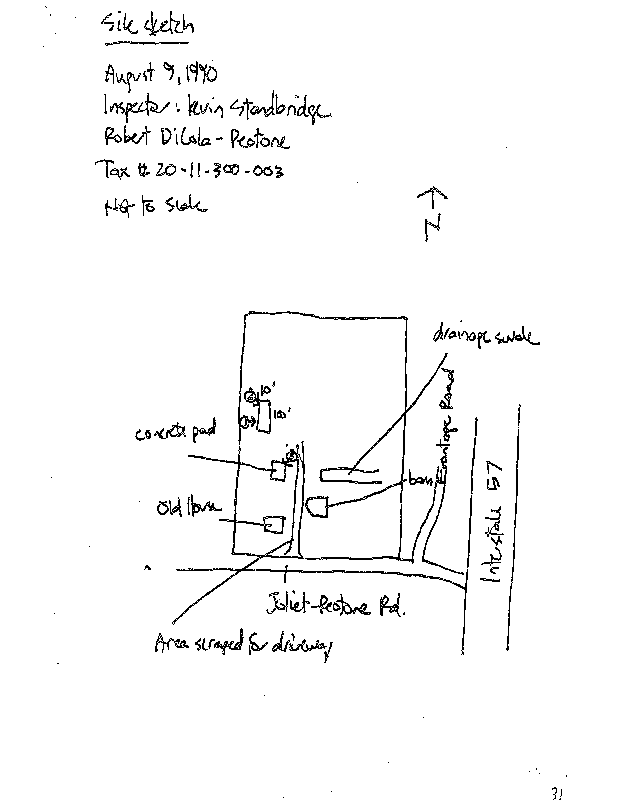 Site sketch
August 9, 1990
Inspector: Kevin Standbridge
Robert DiCola - Peotone
Tax # 20-11-300-003
Not to Scale
N
drainage swale
Frontage Road
10'
10'
concrete pad
barn
Old House
Interstate 57
Joliet-Peotone Rd.
Area scraped for driveway
31